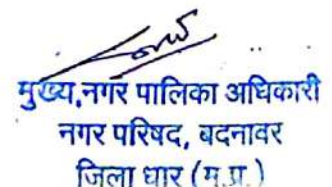 मुख्य,नगर पालिका अधिकारी
नगर परिषद, बदनावर
जिला धार (म.प्र.)